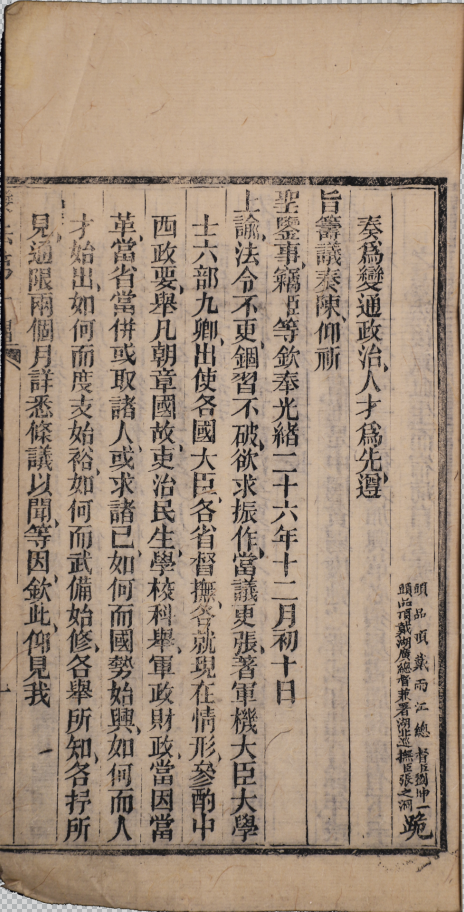 頭品頂戴兩江總督臣劉坤一
頭品頂戴湖廣總督兼署湖北巡撫臣張之洞
跪
奏爲變通政治人才爲先遵
旨籌議奏陳仰祈
聖鑒事竊臣等欽奉光緒二十六年十二月初十日
上諭法令不更錮習不破欲求振作當議更張著軍機大臣大學
士六部九卿出使各國大臣各省督撫各就現在情形參酌中
西政要舉凡朝章國故吏治民生學校科舉軍政財政當因當
革當省當併或取諸人或求諸己如何而國勢始興如何而人
才始出如何而度支始裕如何而武備始修各舉所知各抒所
見通限兩個月詳悉條議以聞等因欽此仰見我